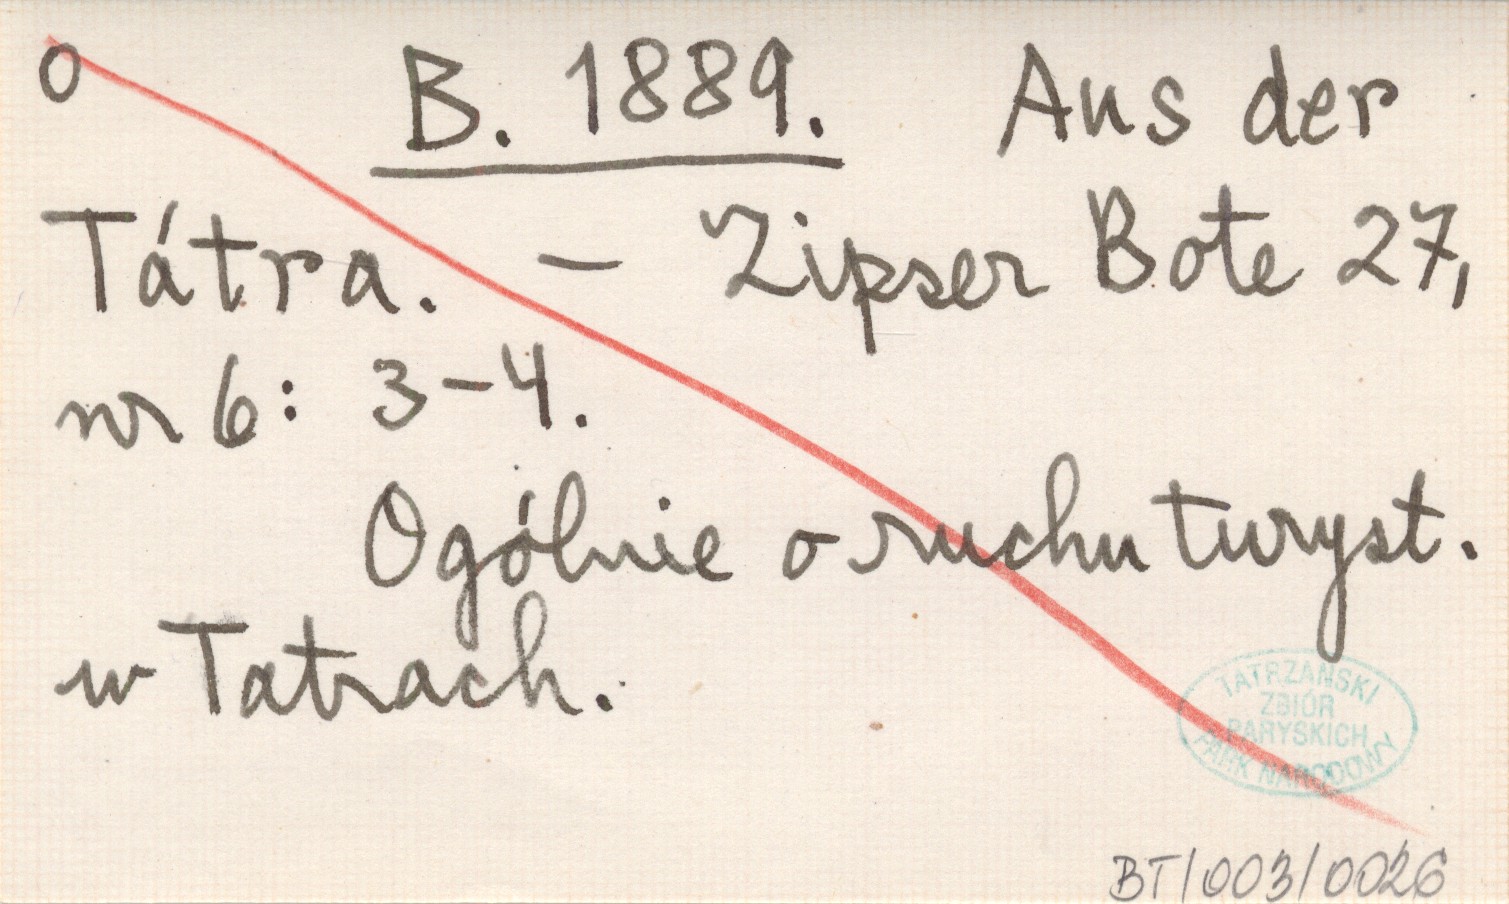 o B. 1889. Aus der
Tátra. – Zipser Bote 27,
nr 6: 3–4.
Ogólnie o ruchu turyst.
w Tatrach.
TATRZAŃSKI
ZBIÓR
PARYSKICH
PARK NARODOWY
BT/003/0026